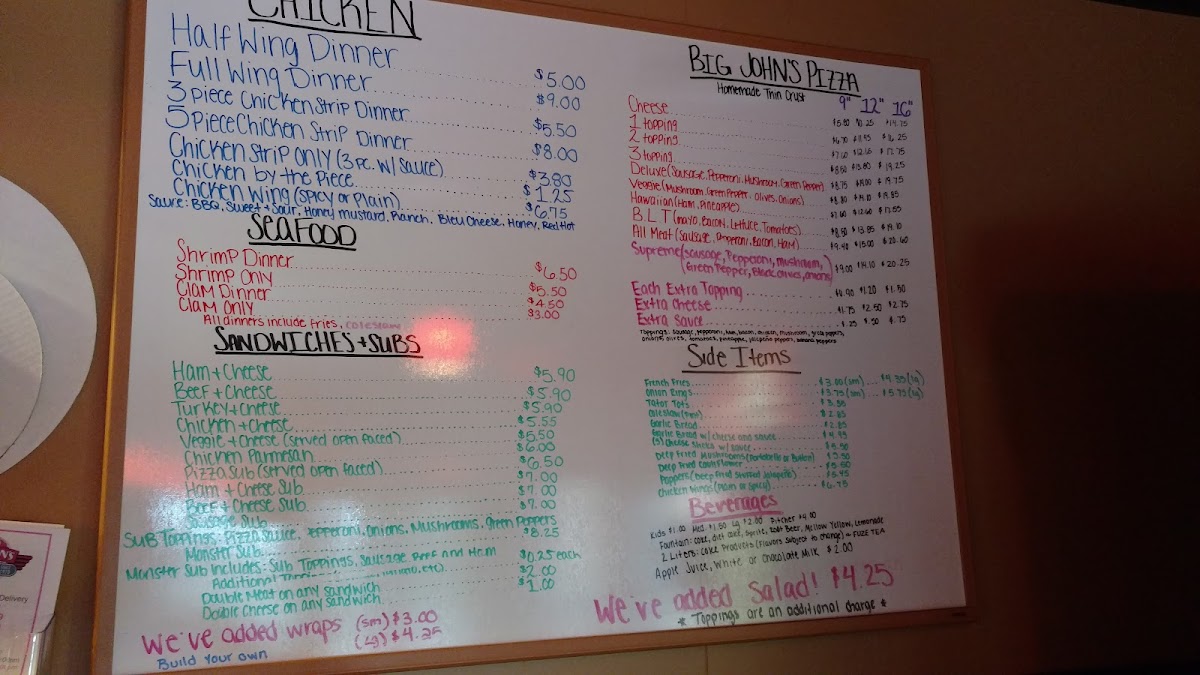 CHICKEN
Half Wing Dinner $5.00
Full Wing Dinner $9.00
3 piece Chicken Strip Dinner $5.50
5 Piece Chicken Strip Dinner $8.00
Chicken Strip Only (3 pc. w/ Sauce) $3.80
Chicken by the Piece $1.25
Chicken Wing (Spicy or Plain) $6.75
Sauce: BBQ, Sweet + Sour, Honey Mustard, Ranch, Bleu Cheese, Honey, Red Hot
SEAFOOD
Shrimp Dinner $6.50
Shrimp Only $5.50
Clam Dinner $4.50
Clam Only $3.00
All dinners include fries, coleslaw
SANDWICHES + SUBS
Ham + Cheese $5.90
Beef + Cheese $5.90
Turkey + Cheese $5.90
Chicken + Cheese $5.55
Veggie + Cheese (served open faced) $5.50
Chicken Parmesan $6.00
Pizza Sub (served open faced) $6.50
Ham + Cheese Sub $7.00
Beef + Cheese Sub $7.00
Sausage Sub $7.00
Sub Toppings: Pizza Sauce, Pepperoni, Onions, Mushrooms, Green Peppers
Monster Sub $8.25
Monster Sub Includes: Sub Toppings, Sausage, Beef and Ham
Additional etc.) $0.25 each
Double Meat on any sandwich $2.00
Double Cheese on any sandwich $1.00
We've added wraps (sm) $3.00
(Lg) $4.25
Build Your own
BIG JOHN'S PIZZA
Homemade Thin Crust
9" 12" 16"
Cheese $14.75
1 topping
2 topping
3 topping
Deluxe (Sausage, Pepperoni, Mushroom, Green Pepper)
Veggie (Mushroom, Green Pepper, Olives, Onions)
Hawaiian (Ham, Pineapple)
B.L.T (mayo, Bacon, Lettuce, Tomatoes)
All Meat (Sausage, Pepperoni, Bacon, Ham) $9.40 $15.00 $20.60
Supreme (Sausage, Pepperoni, mushroom,
Green Pepper, Black olives, onions) $9.00 $14.10 $20.25
Each Extra Topping $.90 $1.20 $1.50
Extra Cheese $1.75 $2.50 $2.75
Extra Sauce $.25 $.50 $.75
Toppings: sausage, pepperoni, ham, bacon, chicken, mushroom, green peppers,
onions, olives, tomatoes, pineapple, jalapeño peppers, banana peppers
Side Items
French Fries $3.00 (sm) $4.30 (lg)
Onion Rings $3.75 (sm) $5.75 (lg)
Tator Tots
Coleslaw (Pint) $2.85
Garlic Bread $2.85
Garlic Bread w/ cheese and sauce $4.99
(5) Cheese Sticks w/ sauce
Deep Fried Mushrooms (Portabella or Button)
Deep Fried Cauliflower
Poppers (Deep Fried Stuffed Jalapeño)
Chicken Wings (Plain or Spicy) $6.75
Beverages
Kids $1.00 Med. $1.50 Lg $2.00 Pitcher $4.00
Fountain: Coke, diet Coke, Sprite, Root Beer, Mellow Yellow, Lemonade
2 Liters: Coke Products (Flavors subject to change) FUZE TEA
Apple Juice, White or Chocolate Milk $2.00
We've added Salad! $4.25
* Toppings are an additional charge *
Delivery